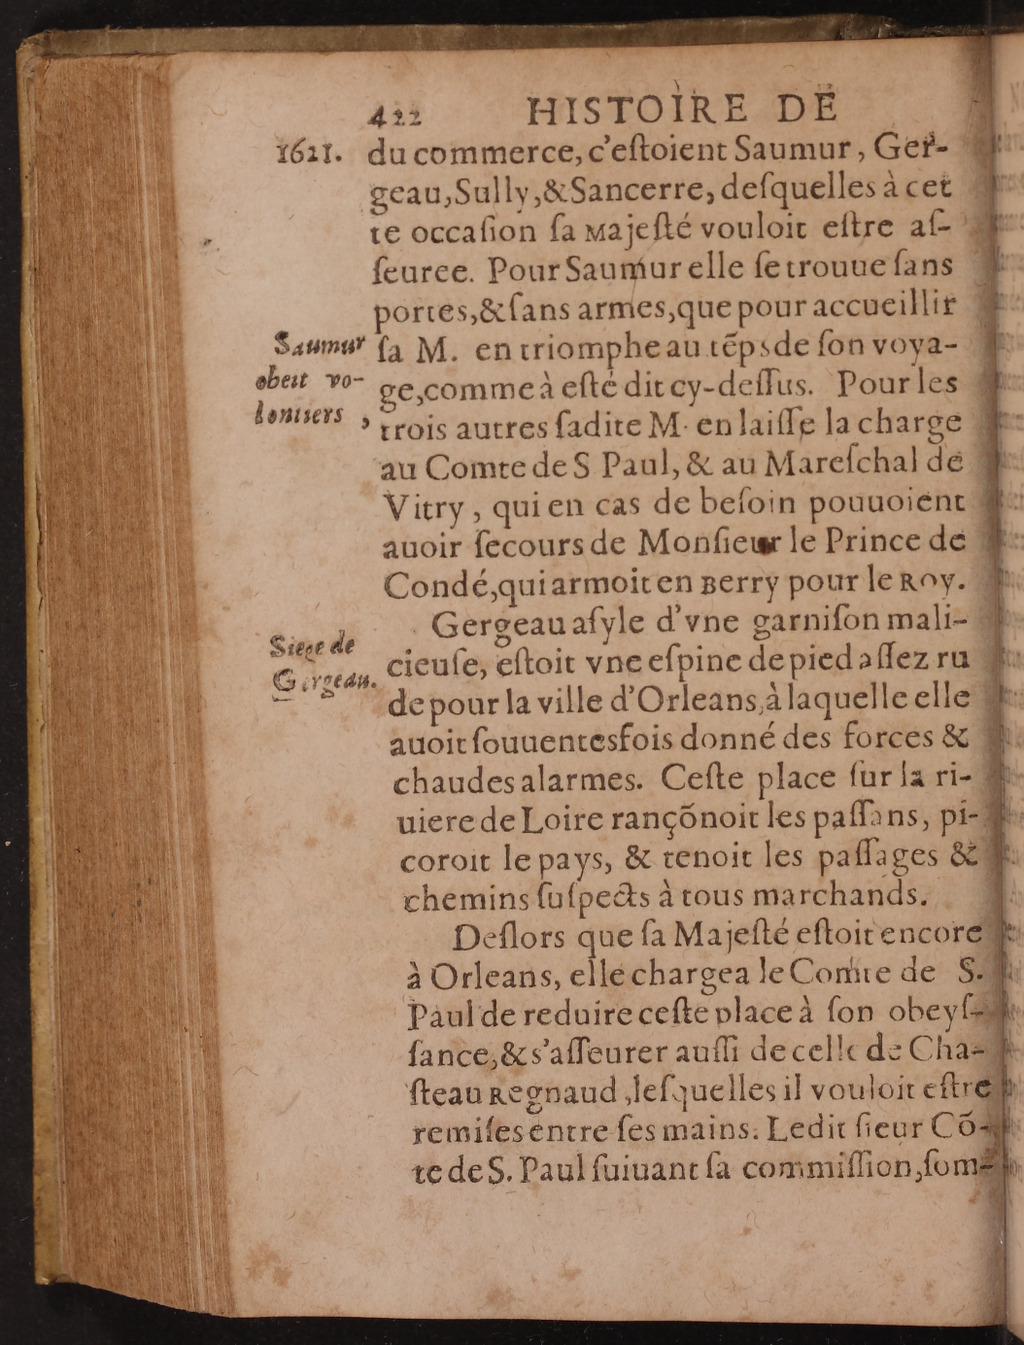 422 HISTOIRE DE
1621. du commerce, c'eſtoient Saumur, Ger-
geau, Sully, & Sancerre, deſquelles à cet
te occaſion ſa Majeſté vouloit eſtre aſ-
ſeuree. Pour Saumur elle ſe trouue ſans
portes, & ſans armes, que pour accueillir
Saumur
obeit vo-
lontiers,
ſa M. en triomphe au tẽps de ſon voya-
ge, comme à eſté dit cy-deſſus. Pour les
trois autres ſadite M. en laiſſe la charge
au Comte de S Paul, & au Mareſchal de
Vitry, qui en cas de beſoin pouuoient
auoir ſecours de Monſieur le Prince de
Condé, qui armoit en Berry pour le Roy.
Siege de
Gergeau.
Gergeau aſyle d'vne garniſon mali-
cieuſe, eſtoit vne eſpine de pied aſſez ru
de pour la ville d'Orleans, à laquelle elle
auoit ſouuentesfois donné des forces &
chaudes alarmes. Ceſte place ſur la ri-
uiere de Loire rançõnoit les paſſans, pi-
coroit le pays, & tenoit les paſſages &
chemins ſuſpects à tous marchands.
Deſlors que ſa Majeſté eſtoit encore
à Orleans, elle chargea le Comte de S.
Paul de reduire ceſte place à ſon obeyſ-
ſance, & s'aſſeurer auſſi de celle de Cha-
ſteau Regnaud, leſquelles il vouloit eſtre
remiſes entre ſes mains. Ledit ſieur Cõ-
te de S. Paul ſuiuant ſa commiſſion, ſom-